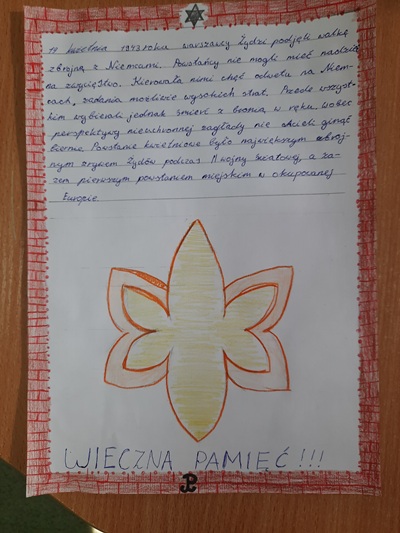 19 kwietnia 1943 roku warszawscy Żydzi podjęli walkę
zbrojną z Niemcami. Powstańcy nie mogli mieć nadziei
na zwycięstwo. Kierowała nimi chęć odwetu na Niem-
cach, zadania możliwie wysokich strat. Przede wszyst-
kim wybierali jednak śmierć z bronią w ręku wobec
perspektywy nieuchronnej zagłady nie chcieli ginąć
biernie. Powstanie kwietniowe było największym zbroj-
nym zrywem Żydów podczas II wojny światowej, a za-
zem pierwszym powstaniem miejskim w okupowanej
Europie.
WIECZNA PAMIĘĆ!!!